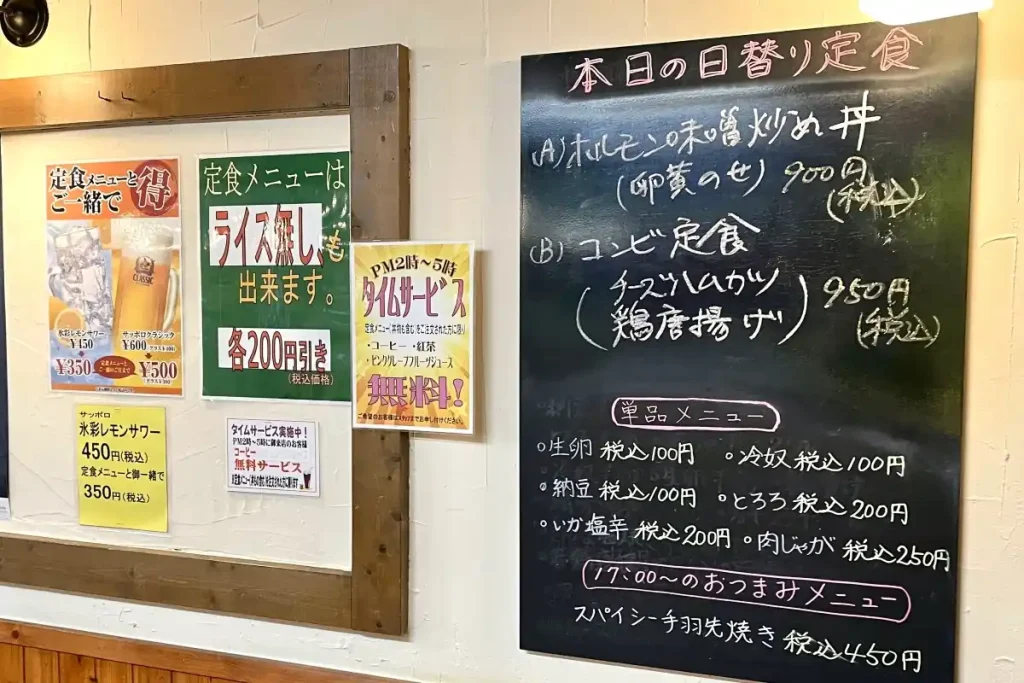 定食メニューと
ご一緒で
得
CLASSIC
氷彩レモンサワー
¥450
¥350
サッポロクラシック
¥600
¥500
定食メニューは
ライス無し、も
出来ます。
各200円引き
(税込価格)
PM2時～5時
タイムサービス
定食メニュー(丼物も含む)をご注文された方に限り
・コーヒー・紅茶
・ピンクグレープフルーツジュース
無料!
サッポロ
氷彩レモンサワー
450円(税込)
定食メニューと御一緒で
350円(税込)
タイムサービス実施中!
PM2時～5時に御来店のお客様
コーヒー
無料サービス
本日の日替り定食
(A) ホルモン味噌炒め丼
(卵黄のせ) 900円
(税込)
(B) コンビ定食
(チーズハムカツ
鶏唐揚げ) 950円
(税込)
単品メニュー
○生卵 税込100円 ○冷奴 税込100円
○納豆 税込100円 ○とろろ 税込200円
○いか塩辛 税込200円 ○肉じゃが 税込250円
17:00～のおつまみメニュー
スパイシー手羽先焼き 税込450円